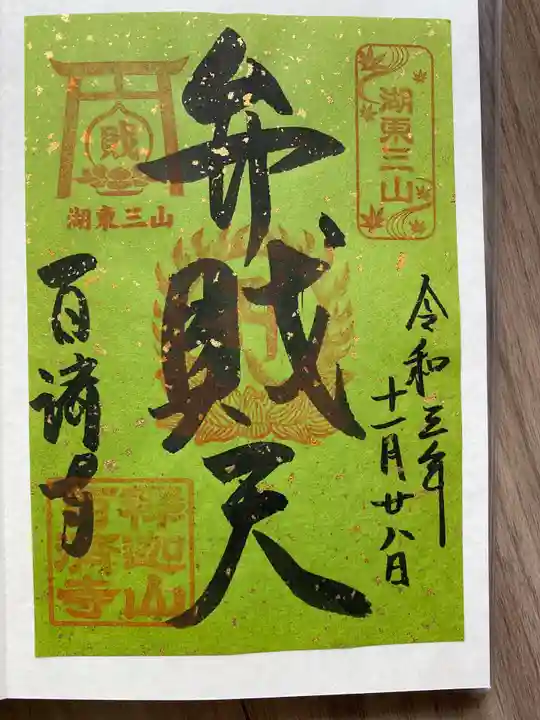 湖東三山
令和三年
十一月廿八日
弁賊天
賊
湖東三山
百済寺
釈迦山
百済寺